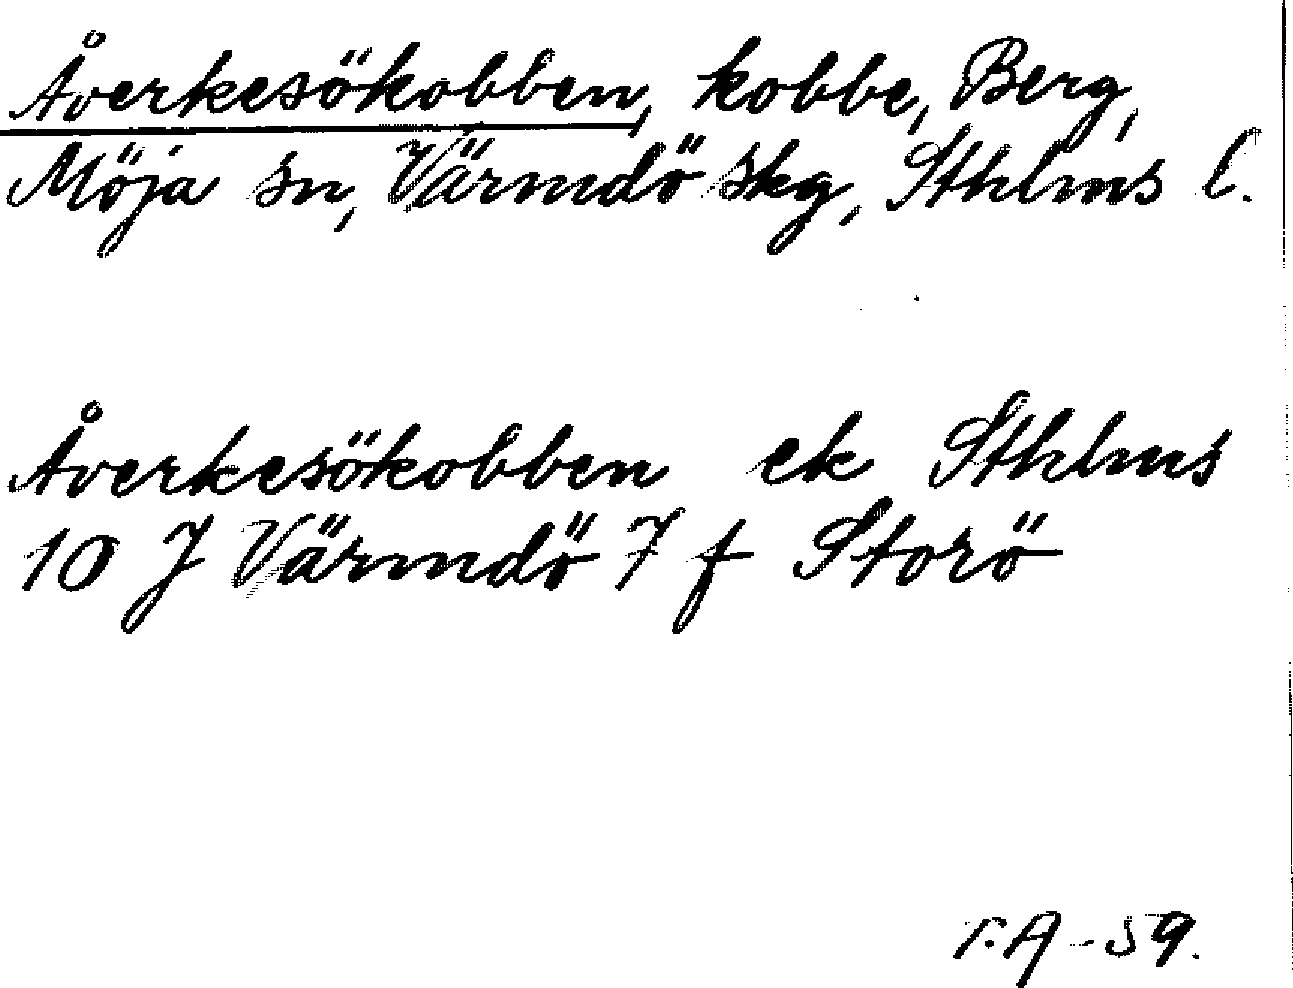 Åverkesökobben, kobbe, Berg,
Möja sn, Värmdö skg, Sthlms l.
Åverkesökobben ek Sthlms
10 J Värmdö 7 f Storö
T.A-59.